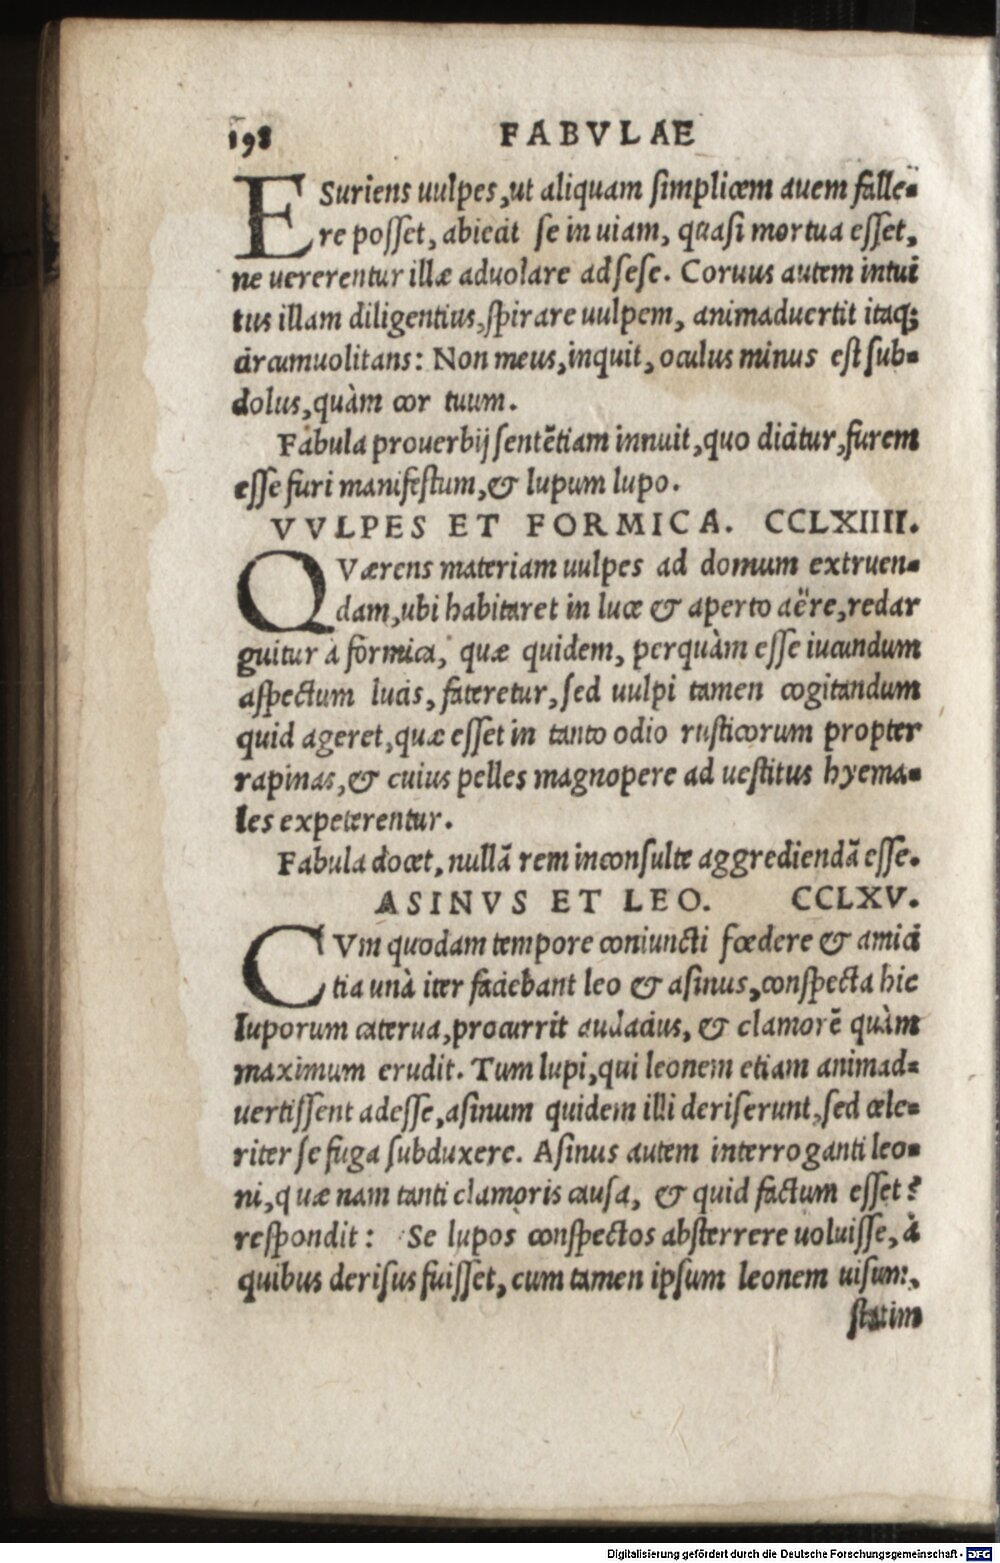 198 FABVLAE
ESuriens uulpes, ut aliquam simplicem auem falle-
re posset, abiecit se in uiam, quasi mortua esset,
ne uererentur illæ aduolare ad sese. Coruus autem intui
tus illam diligentius, spirare uulpem, animaduertit itaq;
circumuolitans: Non meus, inquit, oculus minus est sub-
dolus, quàm cor tuum.
Fabula prouerbij sentẽtiam innuit, quo dicitur, furem
esse furi manifestum, & lupum lupo.
VVLPES ET FORMICA. CCLXIIII.
QVærens materiam uulpes ad domum extruen-
dam, ubi habitaret in luce & aperto aëre, redar
guitur à formica, quæ quidem, perquàm esse iucundum
aspectum lucis, fateretur, sed uulpi tamen cogitandum
quid ageret, quæ esset in tanto odio rusticorum propter
rapinas, & cuius pelles magnopere ad uestitus hyema-
les expeterentur.
Fabula docet, nullã rem inconsulte aggrediendã esse.
ASINVS ET LEO. CCLXV.
CVm quodam tempore coniuncti fœdere & amici
tia unà iter faciebant leo & asinus, conspecta hic
luporum caterua, procurrit audacius, & clamorẽ quàm
maximum erudit. Tum lupi, qui leonem etiam animad-
uertissent adesse, asinum quidem illi deriserunt, sed cele-
riter se fuga subduxere. Asinus autem interroganti leo-
ni, quæ nam tanti clamoris causa, & quid factum esset?
respondit: Se lupos conspectos absterrere uoluisse, à
quibus derisus fuisset, cum tamen ipsum leonem uisum,
statim
Digitalisierung gefördert durch die Deutsche Forschungsgemeinschaft - DFG